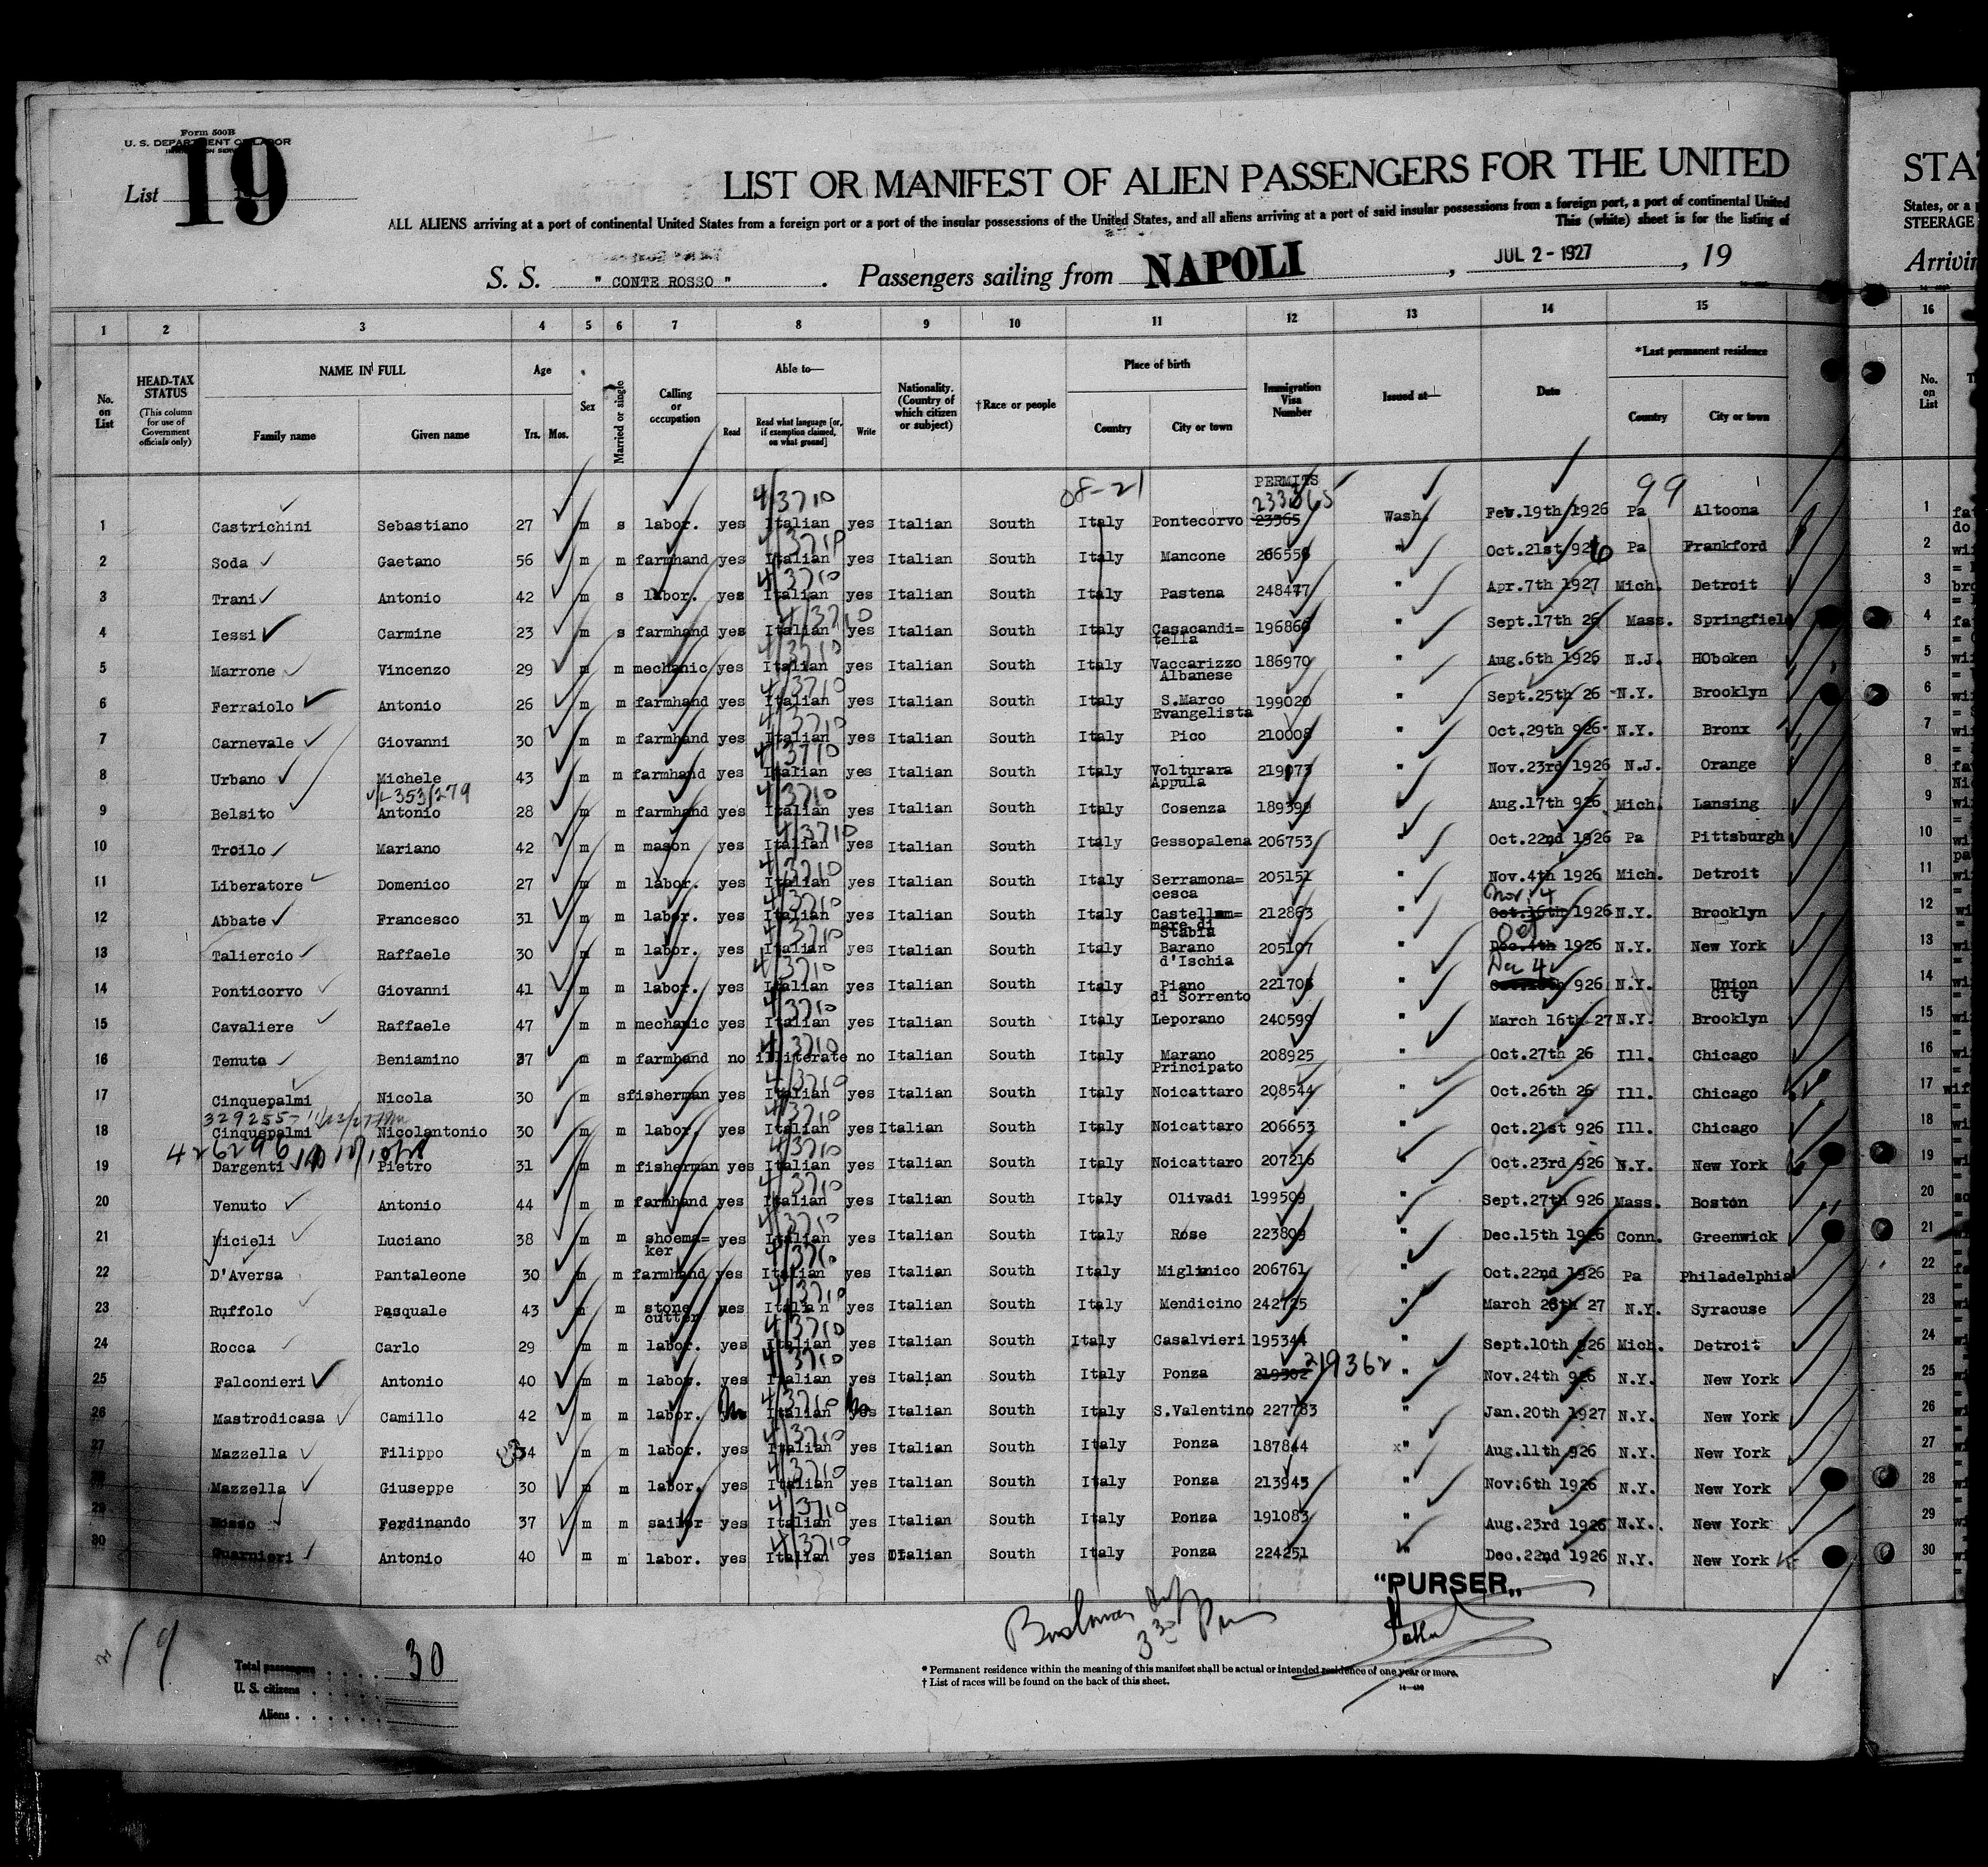 Form 500B
U. S. DEPARTMENT OF LABOR
List 19
LIST OR MANIFEST OF ALIEN PASSENGERS FOR THE UNITED
STA
ALL ALIENS arriving at a port of continental United States from a foreign port or a port of the insular possessions of the United States, and all aliens arriving at a port of said insular possessions from a foreign port, a port of continental United
States, or a
This (white) sheet is for the listing of
STEERAGE
S. S. " CONTE ROSSO " . Passengers sailing from NAPOLI , JUL 2 - 1927 , 19
Arrivin
1 2 3 4 5 6 7 8 9 10 11 12 13 14 15 16
No. on List
HEAD-TAX STATUS (This column for use of Government officials only)
NAME IN FULL Family name Given name
Age Yrs. Mos.
Sex
Married or single
Calling or occupation
Able to— Read Read what language [or, if exemption claimed, on what ground] Write
Nationality. (Country of which citizen or subject)
†Race or people
Place of birth Country City or town
Immigration Visa Number
Issued at—
Date
*Last permanent residence Country City or town
No. on List
08-21 PERMITS 99
4/3710 233365
1 Castrichini Sebastiano 27 m s labor. yes Italian yes Italian South Italy Pontecorvo 23365 Wash. Feb.19th 1926 Pa Altoona 1
2 Soda Gaetano 56 m m farmhand yes Italian yes Italian South Italy Mancone 206556 " Oct.21st 926 Pa Frankford 2
3 Trani Antonio 42 m s labor. yes Italian yes Italian South Italy Pastena 248477 " Apr.7th 1927 Mich. Detroit 3
4 Iessi Carmine 23 m s farmhand yes Italian yes Italian South Italy Casacandi= tella 196866 " Sept.17th 26 Mass. Springfield 4
5 Marrone Vincenzo 29 m m mechanic yes Italian yes Italian South Italy Vaccarizzo Albanese 186970 " Aug.6th 1926 N.J. HOboken 5
6 Ferraiolo Antonio 26 m m farmhand yes Italian yes Italian South Italy S.Marco Evangelista 199020 " Sept.25th 26 N.Y. Brooklyn 6
7 Carnevale Giovanni 30 m m farmhand yes Italian yes Italian South Italy Pico 210008 " Oct.29th 926 N.Y. Bronx 7
8 Urbano Michele 43 m m farmhand yes Italian yes Italian South Italy Volturara Appula 219073 " Nov.23rd 1926 N.J. Orange 8
9 Belsito Antonio 28 m m farmhand yes Italian yes Italian South Italy Cosenza 189399 " Aug.17th 926 Mich. Lansing 9
10 Troilo Mariano 42 m m mason yes Italian yes Italian South Italy Gessopalena 206753 " Oct.22nd 1926 Pa Pittsburgh 10
11 Liberatore Domenico 27 m m labor. yes Italian yes Italian South Italy Serramona= cesca 205151 " Nov.4th 1926 Mich. Detroit 11
12 Abbate Francesco 31 m m labor. yes Italian yes Italian South Italy Castellam= mare di Stabia 212863 " Nov. 4 Oct.16th 1926 N.Y. Brooklyn 12
13 Taliercio Raffaele 30 m m labor. yes Italian yes Italian South Italy Barano d'Ischia 205107 " Oct Dec.4th 1926 N.Y. New York 13
14 Ponticorvo Giovanni 41 m m labor. yes Italian yes Italian South Italy Piano di Sorrento 221706 " Dec 4 926 N.Y. Union City 14
15 Cavaliere Raffaele 47 m m mechanic yes Italian yes Italian South Italy Leporano 240599 " March 16th 27 N.Y. Brooklyn 15
16 Tenuta Beniamino 37 m m farmhand no illiterate no Italian South Italy Marano Principato 208925 " Oct.27th 26 Ill. Chicago 16
17 Cinquepalmi Nicola 30 m s fisherman yes Italian yes Italian South Italy Noicattaro 208544 " Oct.26th 26 Ill. Chicago 17
18 Cinquepalmi Nicolantonio 30 m m labor. yes Italian yes Italian South Italy Noicattaro 206653 " Oct.21st 926 Ill. Chicago 18
426296
19 Dargenti Pietro 31 m m fisherman yes Italian yes Italian South Italy Noicattaro 207216 " Oct.23rd 926 N.Y. New York 19
20 Venuto Antonio 44 m m farmhand yes Italian yes Italian South Italy Olivadi 199509 " Sept.27th 926 Mass. Boston 20
21 Micieli Luciano 38 m m shoema= ker yes Italian yes Italian South Italy Rose 223809 " Dec.15th 1926 Conn. Greenwick 21
22 D'Aversa Pantaleone 30 m m farmhand yes Italian yes Italian South Italy Miglinico 206761 " Oct.22nd 1926 Pa Philadelphia 22
23 Ruffolo Pasquale 43 m m stone cutter yes Italian yes Italian South Italy Mendicino 242725 " March 28th 27 N.Y. Syracuse 23
24 Rocca Carlo 29 m m labor. yes Italian yes Italian South Italy Casalvieri 195344 " Sept.10th 926 Mich. Detroit 24
25 Falconieri Antonio 40 m m labor. yes Italian yes Italian South Italy Ponza 219302 219362 " Nov.24th 926 N.Y. New York 25
26 Mastrodicasa Camillo 42 m m labor. no Italian no yes Italian South Italy S.Valentino 227783 " Jan.20th 1927 N.Y. New York 26
27 Mazzella Filippo 34 m m labor. yes Italian yes Italian South Italy Ponza 187844 x" Aug.11th 926 N.Y. New York 27
28 Mazzella Giuseppe 30 m m labor. yes Italian yes Italian South Italy Ponza 213945 " Nov:6th 1926 N.Y. New York 28
29 Rosso Ferdinando 37 m m sailor yes Italian yes Italian South Italy Ponza 191083 " Aug.23rd 1926 N.Y. New York 29
30 Guarnieri Antonio 40 m m labor. yes Italian yes Italian South Italy Ponza 224251 " Dec.22nd 1926 N.Y. New York 30
"PURSER„
19
Total passengers . . . . 30
U. S. citizens . . . . .
Aliens . . . . . .
* Permanent residence within the meaning of this manifest shall be actual or intended residence of one year or more.
† List of races will be found on the back of this sheet.